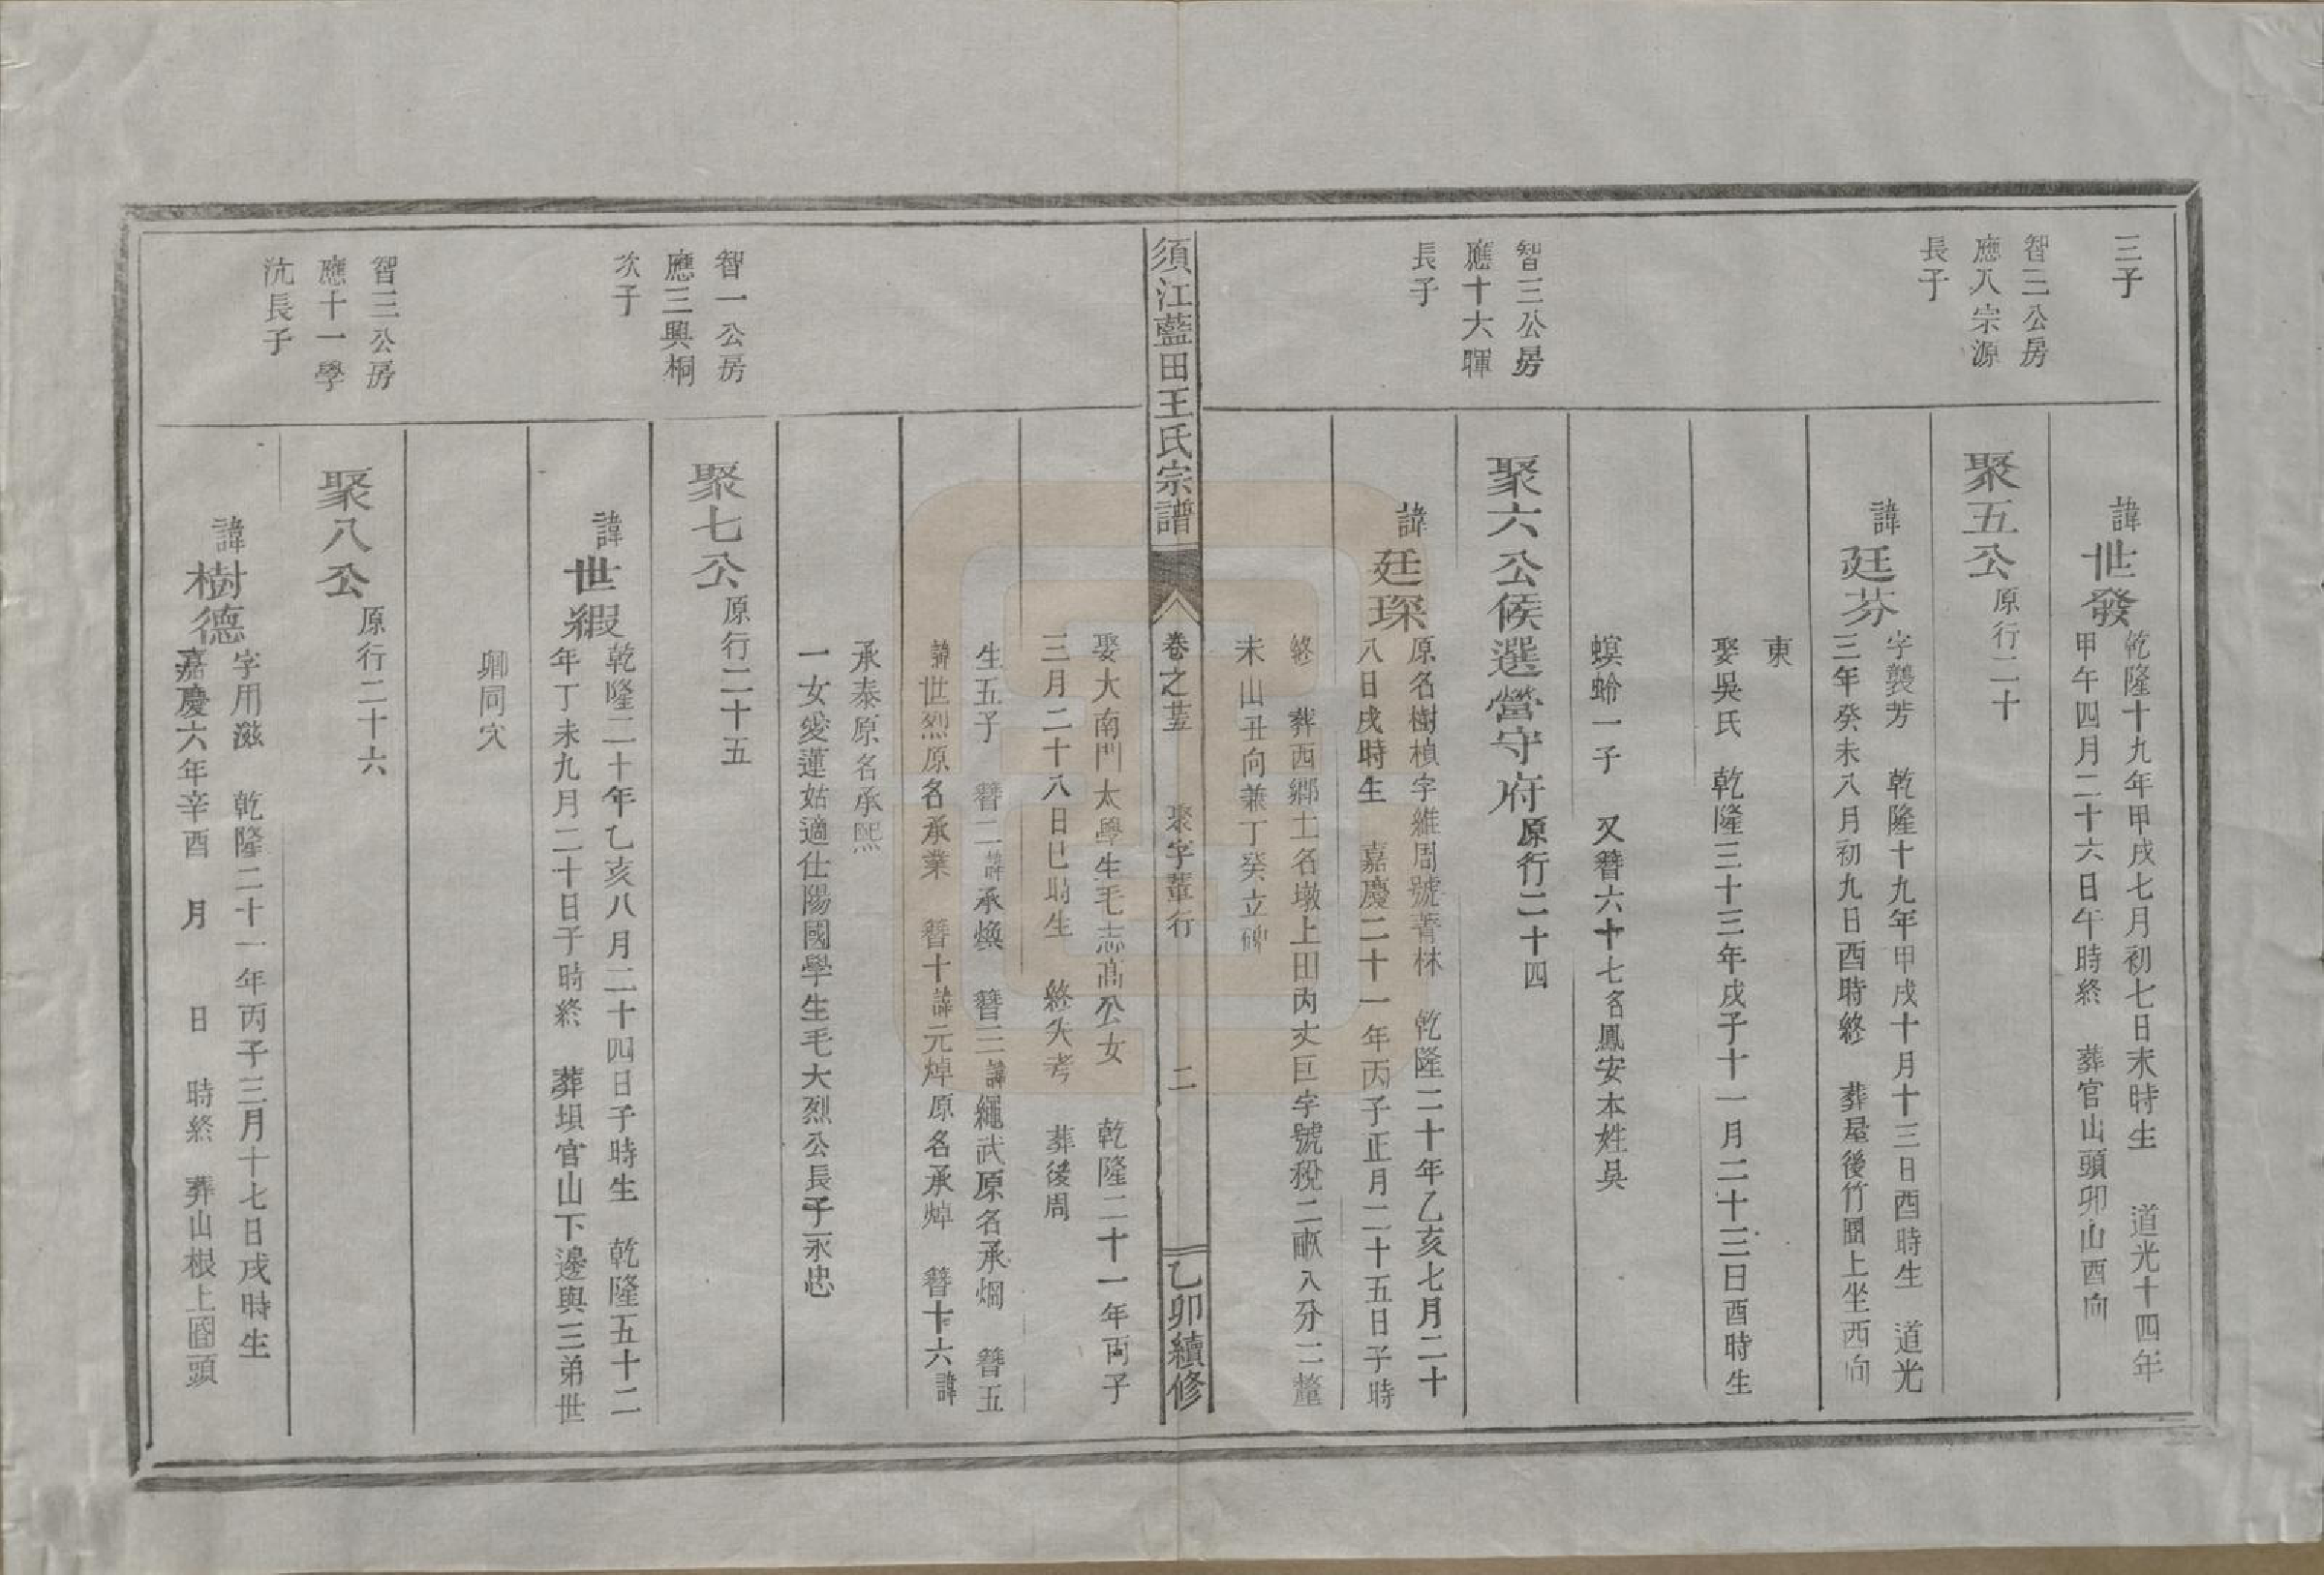 三子
諱世發
乾隆十九年甲戌七月初七日未時生　道光十四年
甲午四月二十六日午時終　葬官山頭卯山酉向
智三公房
應八宗源
長子
聚五公原行二十
諱廷芬
字襲芳　乾隆十九年甲戌十月十三日酉時生　道光
三年癸未八月初九日酉時終　葬屋後竹園上坐西向
東
娶吳氏　乾隆三十三年戊子十一月二十三日酉時生
螟蛉一子　又簪六十七名鳳安本姓吳
智三公房
應十大暉
長子
聚六公候選營守府原行二十四
諱廷琛
原名樹楨字維周號菁林　乾隆二十年乙亥七月二十
八日戌時生　嘉慶二十一年丙子正月二十五日子時
終　葬西鄉土名墩上田內丈巨字號稅二畝八分二釐
未山丑向兼丁癸立碑
須江藍田王氏宗譜
卷之荎　聚字輩行　二
乙卯續修
娶大南門太學生毛志高公女　乾隆二十一年丙子
三月二十八日巳時生　終失考　葬後周
生五子　簪二諱承煥　簪三諱繩武原名承烱　簪五
諱世烈原名承業　簪十諱元焯原名承焯　簪十六諱
承泰原名承熙
一女愛蓮姑適仕陽國學生毛大烈公長子永忠
智一公房
應三興桐
次子
聚七公原行二十五
諱世縀
乾隆二十年乙亥八月二十四日子時生　乾隆五十二
年丁未九月二十日子時終　葬垻官山下邊與三弟世
卿同穴
智三公房
應十一學
沆長子
聚八公原行二十六
諱樹德
字用滋　乾隆二十一年丙子三月十七日戌時生
嘉慶六年辛酉　月　日　時終　葬山根上園頭